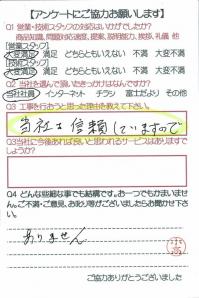 【アンケートにご協力お願いします】
Q1 営業・技術スタッフの対応はいかがでしたか?
商品知識、問題対応速度、提案、説明能力、挨拶、礼儀 他
[営業スタッフ]
大変満足 満足 どちらともいえない 不満 大変不満
[技術スタッフ]
大変満足 満足 どちらともいえない 不満 大変不満
Q2 当社を選んで頂いたきっかけはなんですか?
当社社員 ・ インターネット チラシ 富士だより その他
Q3 工事を行おうと思った理由を教えて下さい。
当社は信頼していますので
Q3当社に今後あれば良いと思われるサービスはありますでしょうか?
Q4 どんな些細な事でも結構です。お一つでもかまいません。ご不満・ご意見、お叱り等がございましたらお聞かせ下さい。
ありません
ご協力ありがとうございました